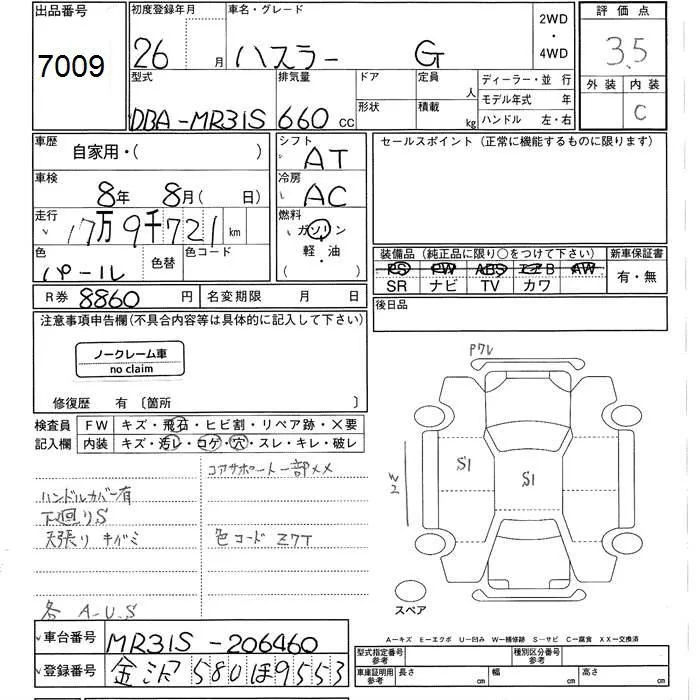 出品番号 初度登録年月 車名・グレード 2WD・4WD 評価点
7009 26 月 ハスラー G 3.5
型式 排気量 ドア 定員 人 ディーラー・並行 外装 内装
DBA-MR31S 660 cc 形状 積載 kg モデル年式 年 C
ハンドル 左・右
車歴 自家用・( ) シフト AT セールスポイント (正常に機能するものに限ります)
車検 8年 8月( 日) 冷房 AC
走行 17万9千721 km 燃料 ガソリン 軽・油 ( ・ )
色 パール 色替 色コード 装備品 (純正品に限り○をつけて下さい) 新車保証書
PS PW ABS エアB AW 有・無
SR ナビ TV カワ
R券 8860 円 名変期限 月 日 後日品
注意事項申告欄(不具合内容等は具体的に記入して下さい)
ノークレーム車
no claim
修復歴 有 〔箇所 〕
検査員 FW キズ・飛石・ヒビ割・リペア跡・×要
記入欄 内装 キズ・汚レ・コゲ・穴・スレ・キレ・破レ
コアサポート一部メメ
ハンドルカバー有
下廻りS
天張り キバミ 色コード Z7T
各 A-U.S
P7L
W2
S1
S1
スペア
A-キズ E-エクボ U-凹み W-補修跡 S-サビ C-腐食 XX-交換済
車台番号 MR31S-206460 型式指定番号 参考 種別区分番号 参考
登録番号 金沢 580 ほ 9553 車庫証明用 参考 長さ cm 幅 cm 高さ cm